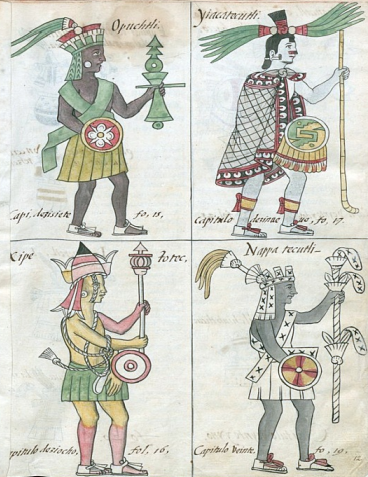 Opuchtli.
Capi. desisiete fo, 15,
Yiacatecutli.
Capitulo decinue ue, fo, 17.
Xipe totec,
capitulo desiocho, fol, 16,
Nappa tecutli
Capitulo Veinte, fo, 19,
12,